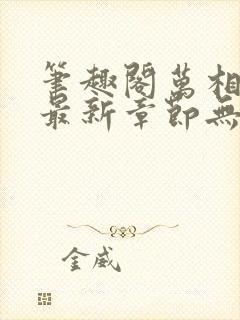 筆趣閣萬相
最新章節無
金威